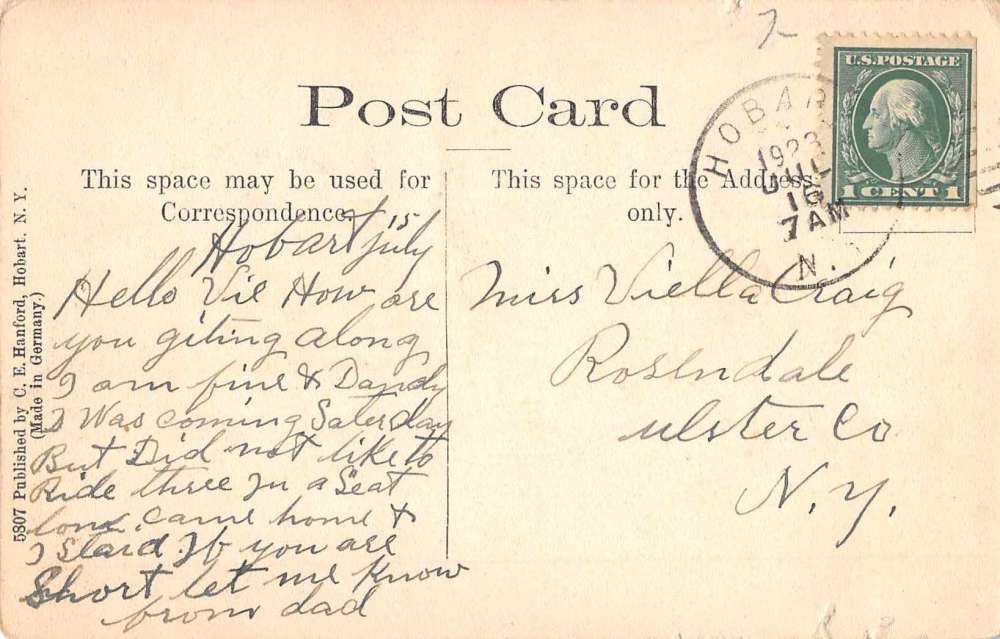 Post Card
U.S. POSTAGE
1 CENT 1
HOBAR
1923
JUL
16
7 AM
N.
This space may be used for
Correspondence.
This space for the Address
only.
Hobart July 15
Hello Vie How are
you giting along
I am fine & Dandy
I Was coming Saterday
But Did not like to
Ride three In a Seat
came home &
I Staid. If you are
Short let me Know
from dad
Miss Viella Craig
Rosendale
Ulster Co
N. Y.
5807 Published by C. E. Hanford, Hobart. N. Y.
(Made in Germany.)